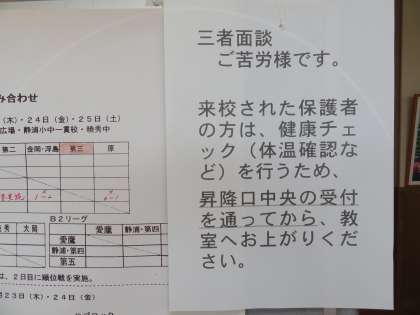 三者面談
ご苦労様です。
来校された保護者
の方は、健康チェ
ック（体温確認な
ど）を行うため、
昇降口中央の受付
を通ってから、教
室へお上がりくだ
さい。
み合わせ
(木)・24日(金)・25日(土)
広場・静浦小中一貫校・暁秀中
第二 金岡・浮島 第三 原
B2リーグ
秀 大岡 愛鷹 静浦・第四
愛鷹
静浦・第四
第五
は、2日目に順位戦を実施。
23日(木)・24日(金)
ブロック